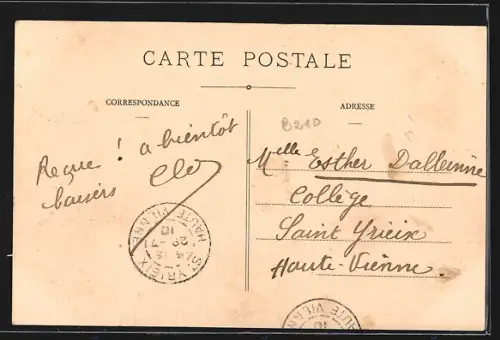 CARTE POSTALE
CORRESPONDANCE
Reçue ! a bientôt
baisers Clo
ADRESSE
B210
Melle Esther Dalleinne
Collège
Saint Yrieix
Haute-Vienne
ST YRIEIX
29 -7
10
HAUTE VIENNE
10
HAUTE VIENNE